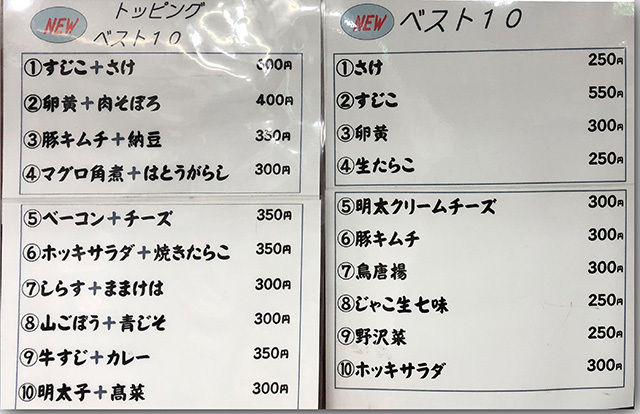 NEW トッピング
ベスト10
①すじこ+さけ 600円
②卵黄+肉そぼろ 400円
③豚キムチ+納豆 350円
④マグロ角煮+はとうがらし 300円
⑤ベーコン+チーズ 350円
⑥ホッキサラダ+焼きたらこ 350円
⑦しらす+ままけは 300円
⑧山ごぼう+青じそ 300円
⑨牛すじ+カレー 350円
⑩明太子+高菜 300円
NEW ベスト10
①さけ 250円
②すじこ 550円
③卵黄 300円
④生たらこ 250円
⑤明太クリームチーズ 300円
⑥豚キムチ 300円
⑦鳥唐揚 300円
⑧じゃこ生七味 250円
⑨野沢菜 250円
⑩ホッキサラダ 300円